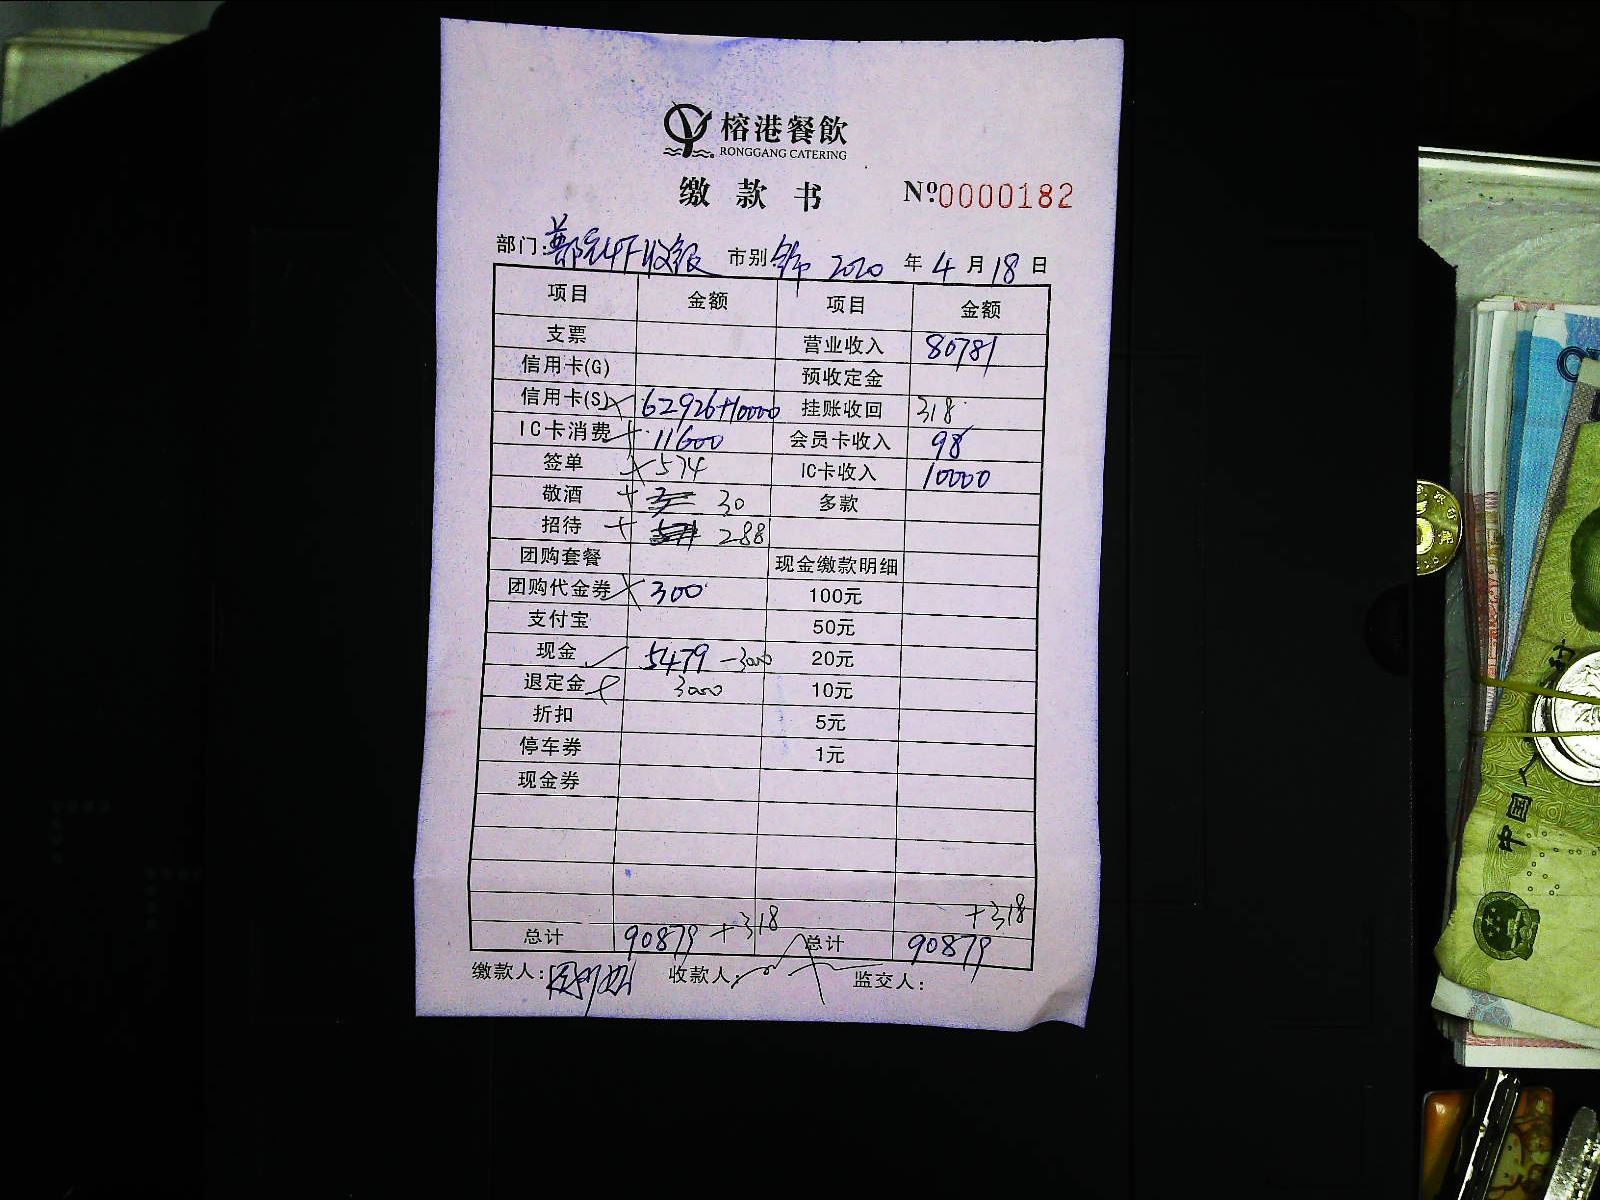 榕港餐飲
RONGGANG CATERING
缴款书 №0000182
部门: 4F收银 市别 2020 年 4 月 18 日
项目 金额 项目 金额
支票 营业收入 80781
信用卡(G) 预收定金
信用卡(S) 62926+10000 挂账收回 318
IC卡消费 11600 会员卡收入 98
签单 574 IC卡收入 10000
敬酒 30 多款
招待 288
团购套餐 现金缴款明细
团购代金券 300 100元
支付宝 50元
现金 5479 -3000 20元
退定金 3000 10元
折扣 5元
停车券 1元
现金券
+318
总计 90879 +318 总计 90879
缴款人: 收款人: 监交人:
中国人